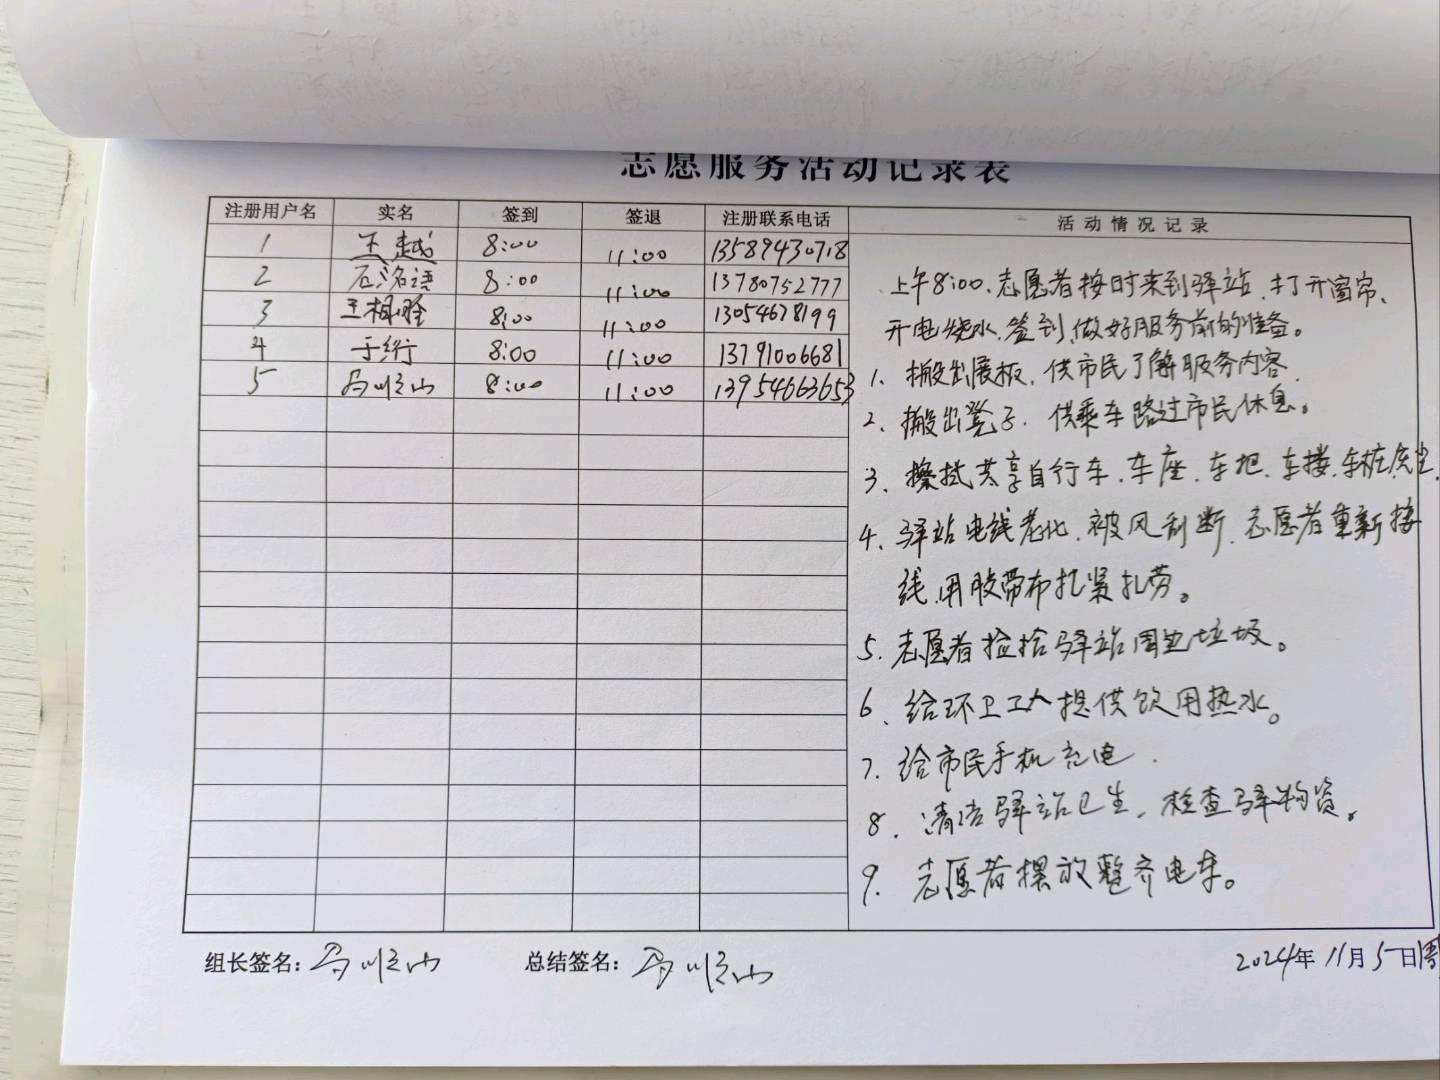 志愿服务活动记录表
注册用户名 实名 签到 签退 注册联系电话 活动情况记录
1 王越 8:00 11:00 13589430718
2 石洺语 8:00 11:00 13780752777
3 王相 8:00 11:00 13054678199
4 于衍 8:00 11:00 13791006681
5 马顺山 8:00 11:00 13954663653
上午8:00、志愿者按时来到驿站、打开窗帘、
开电烧水、签到、做好服务前的准备。
1、搬出展板、供市民了解服务内容.
2、搬出凳子、供乘车路过市民休息。
3、擦拭共享自行车、车座、车把、车搂、车桩灰尘.
4、驿站电线老化、被风刮断、志愿者重新接
线、用胶带布扎紧扎劳。
5、志愿者捡拾驿站周边垃圾。
6、给环卫工人提供饮用热水。
7、给市民手机充电.
8、清洁驿站卫生、检查驿物资。
9、志愿者摆放整齐电车。
组长签名：马顺山 总结签名：马顺山 2024年11月5日